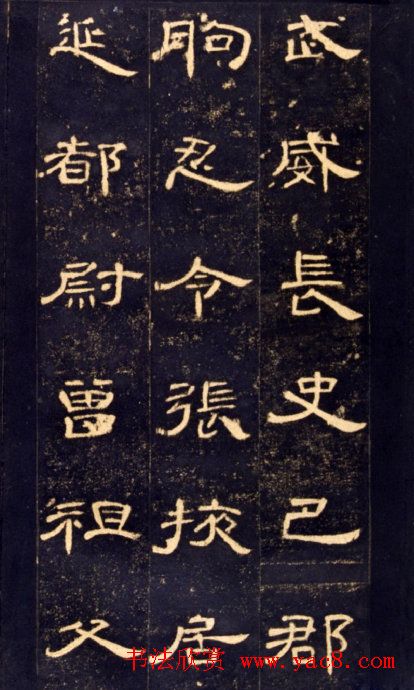 武威長史巴郡
朐忍令張掖居
延都尉曾祖父
书法欣赏 www.yac8.com